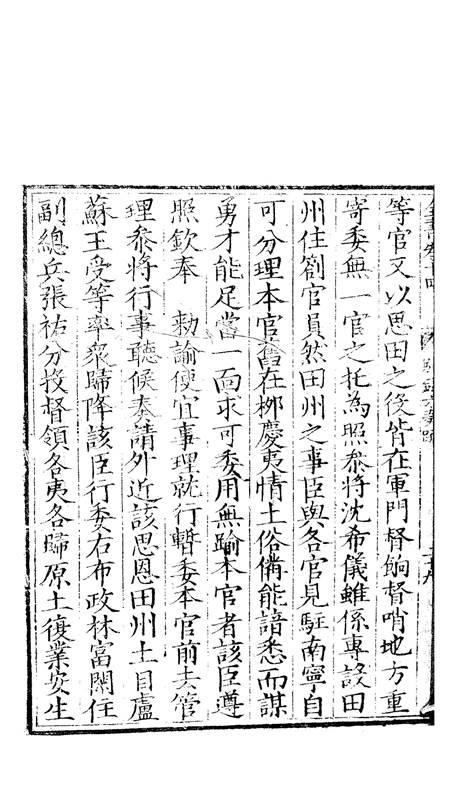 等官又以思田之役皆在軍門督餉督哨地方重
寄委無一官之托為照叅將沈希儀雖係專設田
州住劄官員然田州之事臣與各官見駐南寧自
可分理本官舊在栁慶夷情土俗備能諳悉而謀
勇才能足當一面求可委用無踰本官者該臣遵
照欽奉　勅諭便宜事理就行暫委本官前去管
理叅將行事聽候奏請外近該思恩田州土目盧
蘇王受等率衆歸降該臣行委右布政林富閑住
副總兵張祐分投督領各夷各歸原土復業安生